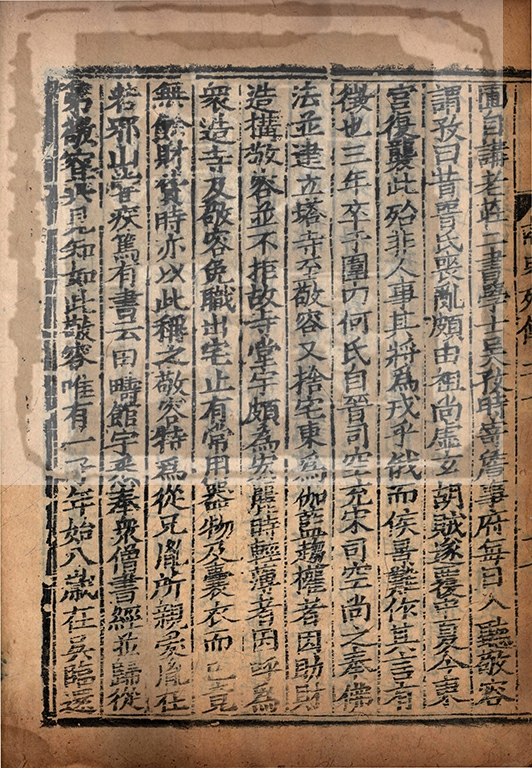 圃自講老莊二書學士吳孜時寄詹事府每日入聽敬容
謂孜曰昔晉氏喪亂頗由祖尚虛玄胡賊遂覆中夏今東
宮復襲此殆非人事其將為戎乎俄而侯景難作其言有
徵也三年卒于圍內何氏自晉司空充宋司空尚之奉佛
法並建立塔寺至敬容又捨宅東為伽藍趨權者因助財
造構敬容並不拒故寺堂宇頗為宏麗時輕薄者因呼為
衆造寺及敬容免職出宅止有常用器物及囊衣而已竟
無餘財貨時亦以此稱之敬容特為從兄胤所親愛胤在
若邪山嘗疾篤有書云田疇館宇悉奉衆僧書經並歸從
弟敬容其見知如此敬容唯有一子年始八歲在吳臨還